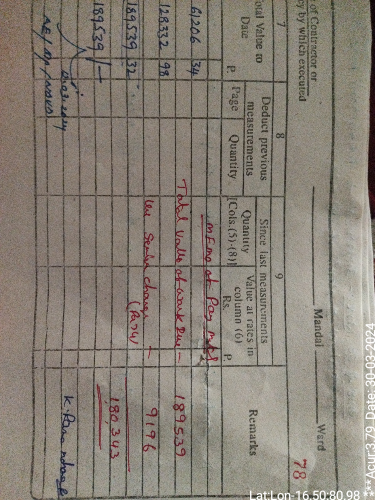 of Contractor or
cy by which executed
Mandal
Ward
78
7
8
9
otal Value to
Date
P.
Deduct previous
measurements
Page
Quantity
Since last measurements
Quantity
[Cols.(5)-(8)]
Value at rates in
column (6)
Rs. P.
Remarks
61206 34
128332 98
189539 32
189539/-
Memo of Payment
Total value of work Due - 189539
9196
180,343
***Acur:3.79 Date:30-03-2024
Lat:Lon-16.50:80.98 ***